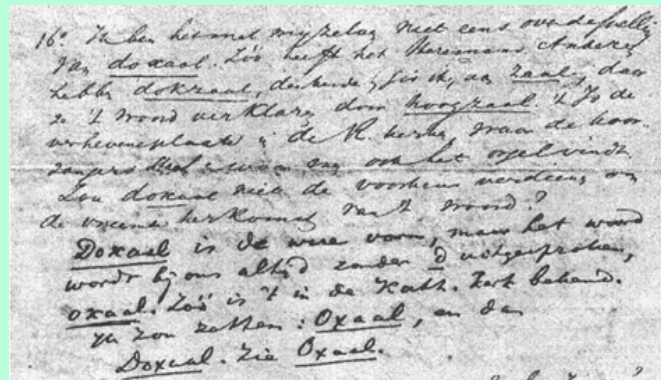 16o. Ik ben het met myzelven niet eens over de spelling
van doxaal. Zóó heeft het Heremans. Anderen
hebben dokzaal, denkende, gis ik, aan zaal, daar
ze 't woord verklaren door hoogzaal. 't Is de
verhevene plaats in de R. kerken, waar de koor-
zangers en waar men ook het orgel vindt.
Zou doxaal niet de voorkeur verdienen om
de vreemde herkomst van 't woord?
Doxaal is de ware vorm, maar het woord
wordt bij ons altijd zonder d uitgesproken,
oxaal. Zóó is 't in de Kath. kerk bekend.
Ik zou zetten: Oxaal, en dan
Doxaal. Zie Oxaal.